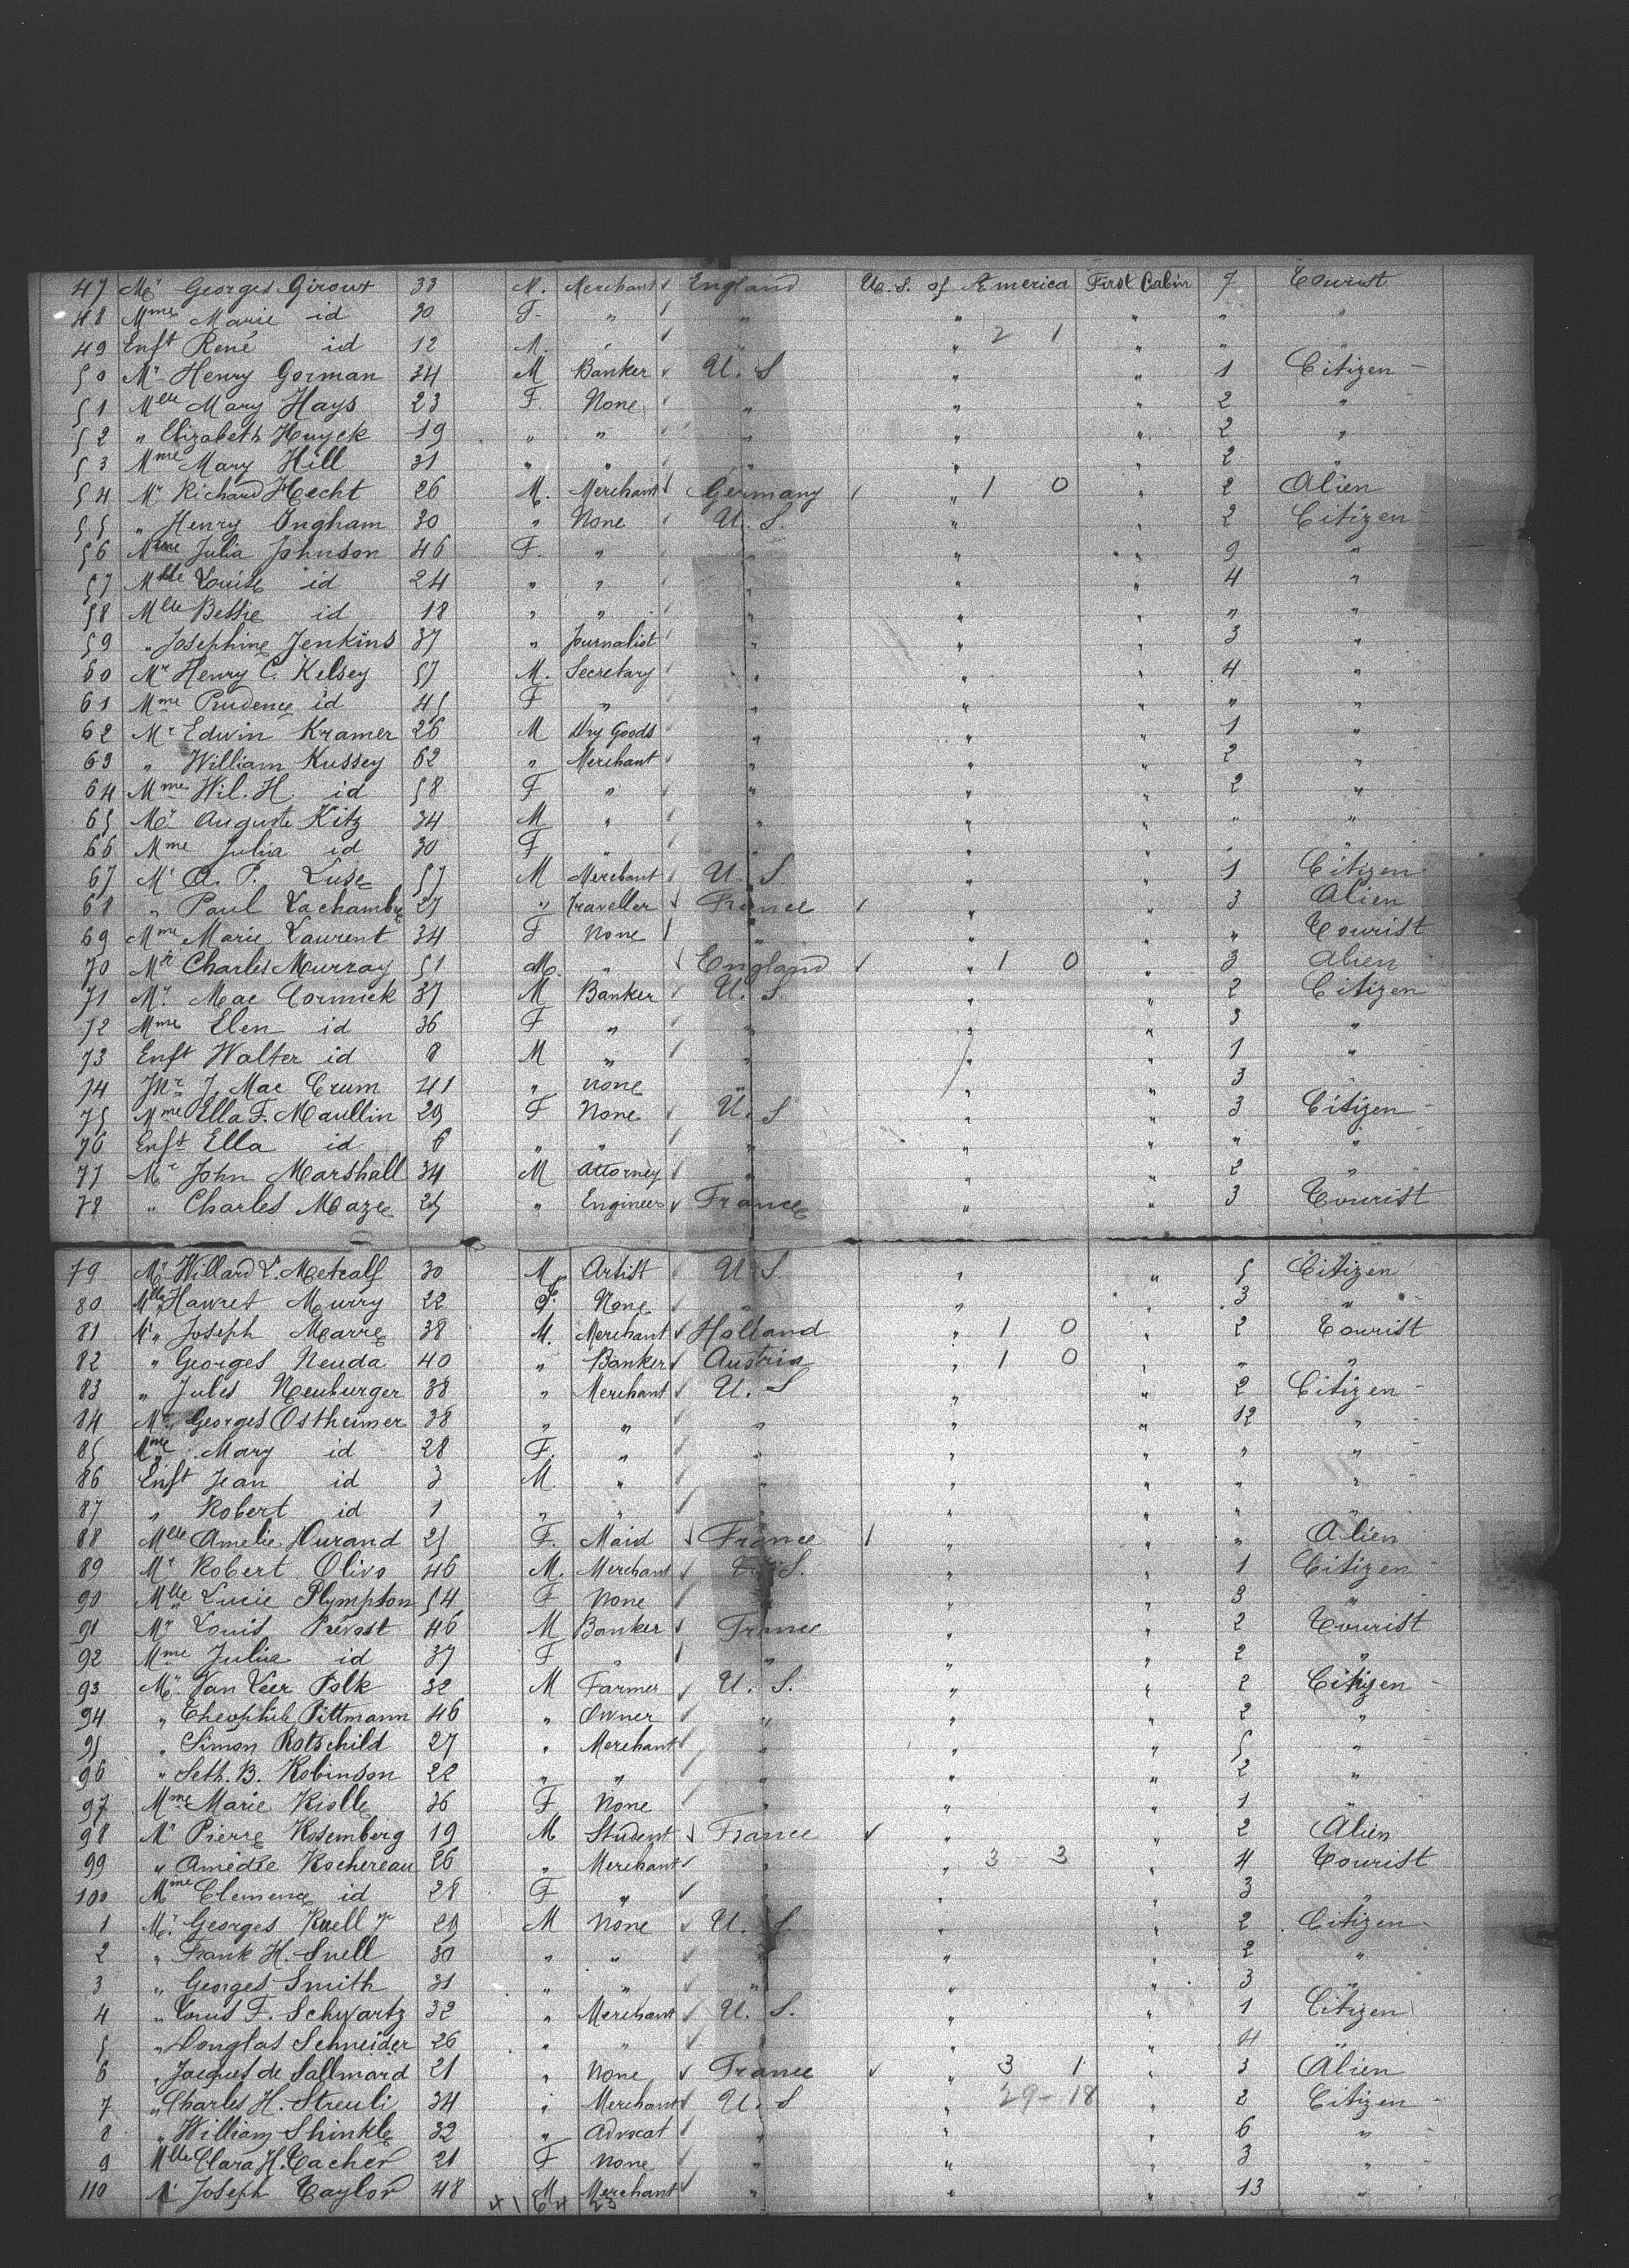 47 Mr Georges Giroux 33 M. Merchant England U. S. of America First Cabin 7 Tourist
48 Mme Marie id 30 F. " " " 2 1 " " "
49 Enft René id 12 M. " " " " " "
50 Mr Henry Gorman 34 M Banker U. S " " 1 Citizen
51 Mlle Mary Hays 23 F. None " " " 2 "
52 " Elizabeth Huyck 19 " " " " " 2 "
53 Mme Mary Hill 31 " " " " " 2 "
54 Mr Richard Hecht 26 M. Merchant Germany " 1 0 " 2 Alien
55 " Henry Ingham 30 " None U. S. " " 2 Citizen
56 Mme Julia Johnson 46 F. " " " " 9 "
57 Mlle Louise id 24 " " " " " 4 "
58 Mlle Bessie id 18 " " " " " " "
59 " Josephine Jenkins 37 " Journalist " " " 3 "
60 Mr Henry C. Kelsey 57 M. Secretary " " " 4 "
61 Mme Prudence id 45 F " " " " " "
62 Mr Edwin Kramer 26 M Dry Goods " " " 1 "
63 " William Kussey 62 " Merchant " " " 2 "
64 Mme Wil. H. id 58 F " " " " 2 "
65 Mr Auguste Kitz 34 M " " " " " "
66 Mme Julia id 30 F " " " " " "
67 Mr A. P. Luse 57 M Merchant U. S. " " 1 Citizen
68 " Paul Lachambre 27 " Traveller France " " 3 Alien
69 Mme Marie Laurent 34 F None " " " " Tourist
70 Mr Charles Murray 51 M. " England " 1 0 " 3 Alien
71 Mr Mac Cormick 37 M Banker U. S " " 2 Citizen
72 Mme Elen id 36 F " " " " 3 "
73 Enft Walter id 8 M " " " " 1 "
74 Mr J. Mac Crum 41 " none " " " 3 "
75 Mme Ella F. Maullin 29 F None U. S " " 3 Citizen
76 Enft Ella id 6 " " " " " " "
77 Mr John Marshall 34 M Attorney " " " 2 "
78 " Charles Maze 25 " Engineer France " " 3 Tourist
79 Mr Willard L. Metcalf 30 M Artist U. S. " " 5 Citizen
80 Mlle Hawret Murry 22 F. None " " " 3 "
81 Mr Joseph Marre 38 M. Merchant Holland " 1 0 " 2 Tourist
82 " Georges Neuda 40 " Banker Austria " 1 0 " " "
83 " Jules Neuburger 38 " Merchant U. S " " 2 Citizen
84 Mr Georges Ostheimer 38 " " " " " 12 "
85 Mme Mary id 28 F. " " " " " "
86 Enft Jean id 3 M. " " " " " "
87 " Robert id 1 " " " " " " "
88 Mlle Amelie Durand 25 F. Maid France " " " Alien
89 Mr Robert Olivo 46 M. Merchant U. S. " " 1 Citizen
90 Mlle Lucie Plympton 54 F None " " " 3 "
91 Mr Louis Prévost 46 M Banker France " " 2 Tourist
92 Mme Julia id 37 F " " " " 2 "
93 Mr Van Leer Polk 32 M Farmer U. S. " " 2 Citizen
94 " Theophile Pittmann 46 " Owner " " " 2 "
95 " Simon Rotschild 27 " Merchant " " " 5 "
96 " Seth. B. Robinson 22 " " " " " 2 "
97 Mme Marie Riolle 36 F None " " " 1 "
98 Mr Pierre Rosemberg 19 M Student France " " 2 Alien
99 " Amédée Rochereau 26 " Merchant " " 3 - 3 " 4 Tourist
100 Mme Clemence id 28 F " " " " 3 "
1 Mr Georges Ruell Jr 29 M None U. S. " " 2 Citizen
2 " Frank H. Snell 30 " " " " " 2 "
3 " Georges Smith 31 " " " " " 3 "
4 " Louis F. Schwartz 32 " Merchant U. S. " " 1 Citizen
5 " Douglas Schneider 26 " " " " " 4 "
6 " Jacques de Sallmard 21 " None France " 3 1 " 3 Alien
7 " Charles H. Streuli 34 " Merchant U. S " 29 - 18 " 2 Citizen
8 " William Shinkle 32 " Advocat " " " 6 "
9 Mlle Clara H. Tacher 21 F None " " " 3 "
110 Mr Joseph Taylor 48 M Merchant " " " 13 "
41 64 23